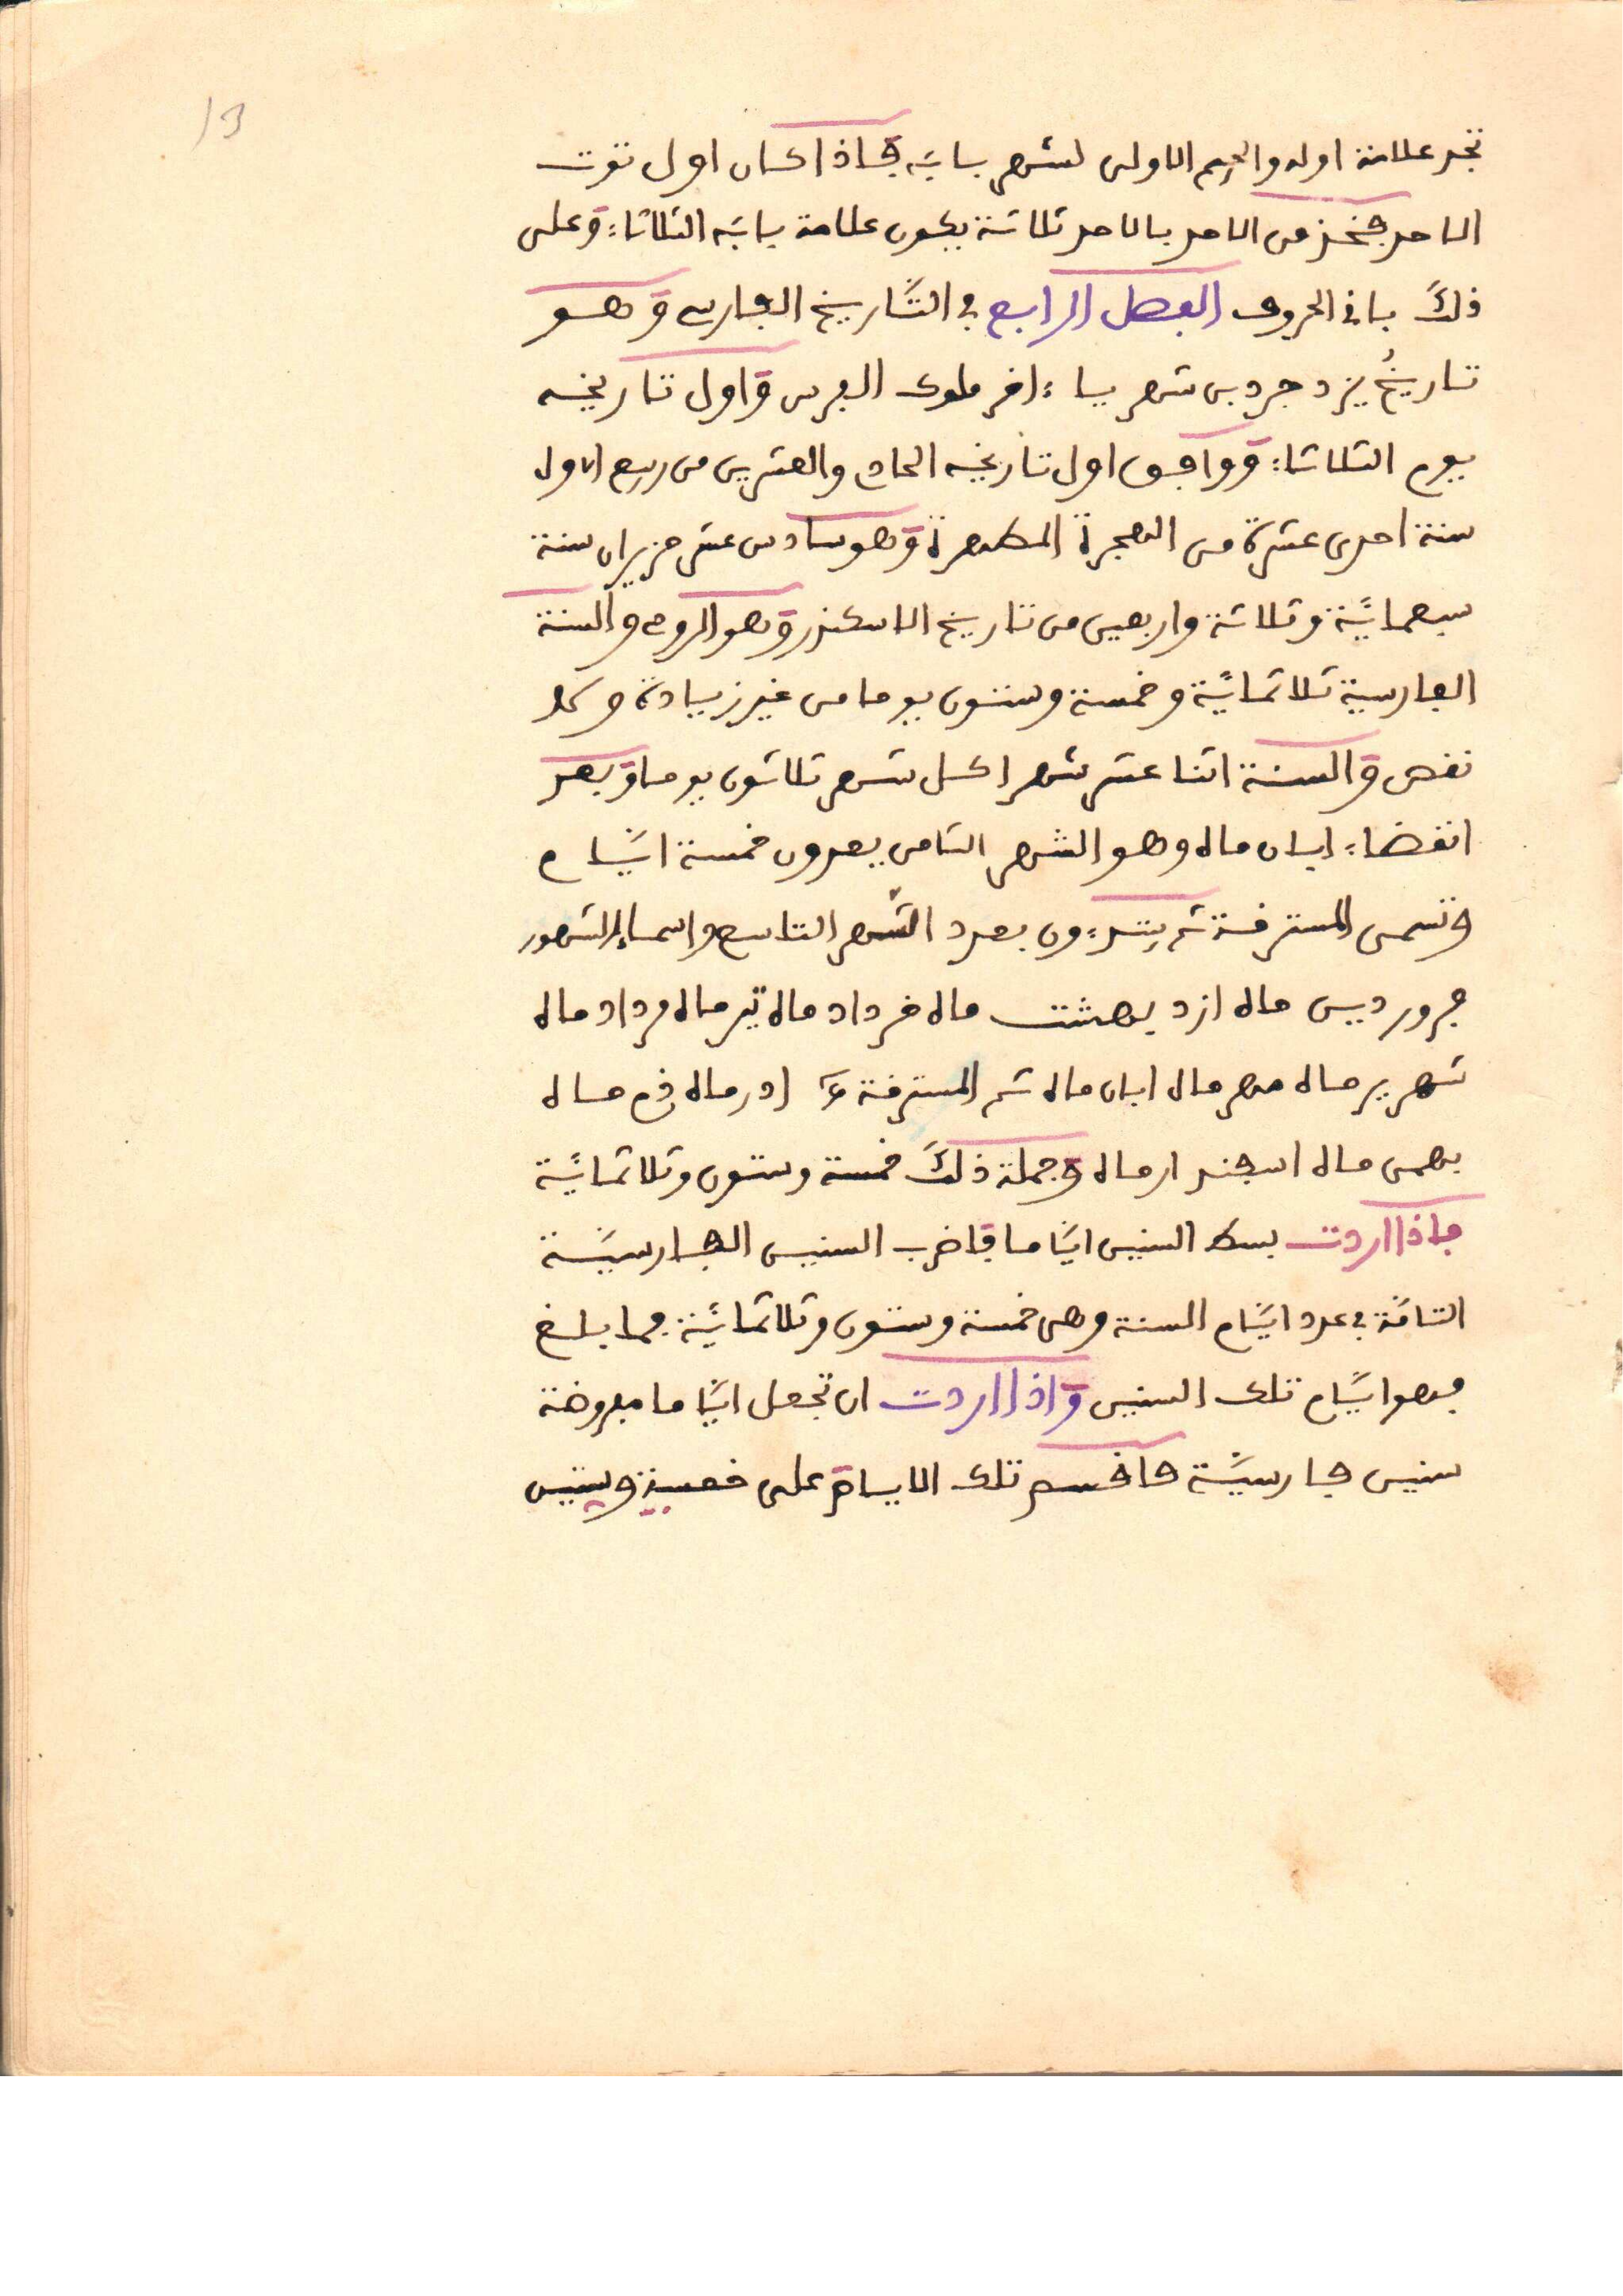 13
تجد علامة اوله والجيم الاولى لشهر بابَه فاذا كان اول توت
الاحد فخذ من الاحد بالاحد ثلاثة يكون علامة بابَه الثلاثاء وعلى
ذلك باقى الحروف الفصل الرابع في التَّاريخ الفارسي وهو
تاريخُ يزدجرد بن شهريا اخر ملوك الفرس واول تاريخه
يوم الثلاثاء ووافق اول تاريخه الحادي والعشرين من ربيع الاول
سنة احدى عشرة من الهجرة المطهرة وهو سادس عشر حزيران سنة
سبعمائة وثلاثة واربعين من تاريخ الاسكندر وهو الرومي والسنة
الفارسية ثلاثمائة وخمسة وستون يوما من غير زيادة ولا
نقص والسنة اثنا عشر شهرا كل شهر ثلاثون يوما وبعد
انقضاء ابان ماه وهو الشهر الثامن يعدون خمسة ايَّام
وتسمى المسترقة ثم يبتدءون بعدد الشهر التاسع واسماء الشهور
فرورديس ماه ازديبهشت ماه خرداد ماه تير ماه مرداد ماه
شهرير ماه مهر ماه ابان ماه ثم المسترقة ادر ماه دي ماه
بهمن ماه اسفندار ماه وجملة ذلك خمسة وستون وثلاثمائة
فاذا اردت بسط السنين ايَّاما فاضرب السنين الفارسيَّة
التامَّة في عدد ايَّام السنة وهى خمسة وستون وثلاثمائة فما بلغ
فهو ايَّام تلك السنين واذا اردت ان تجعل ايَّاما مفروضة
سنين فارسيَّة فاقسم تلك الايام على خمسة وستين